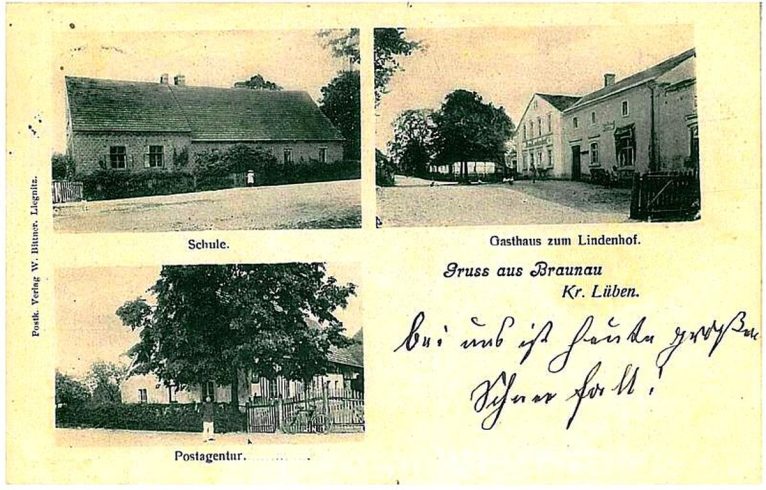 Schule.
Gasthaus zum Lindenhof.
Gruss aus Braunau
Kr. Lüben.
bei uns ist heute großer
Schneefall!
Postagentur.
Postk. Verlag W. Bittner. Liegnitz.